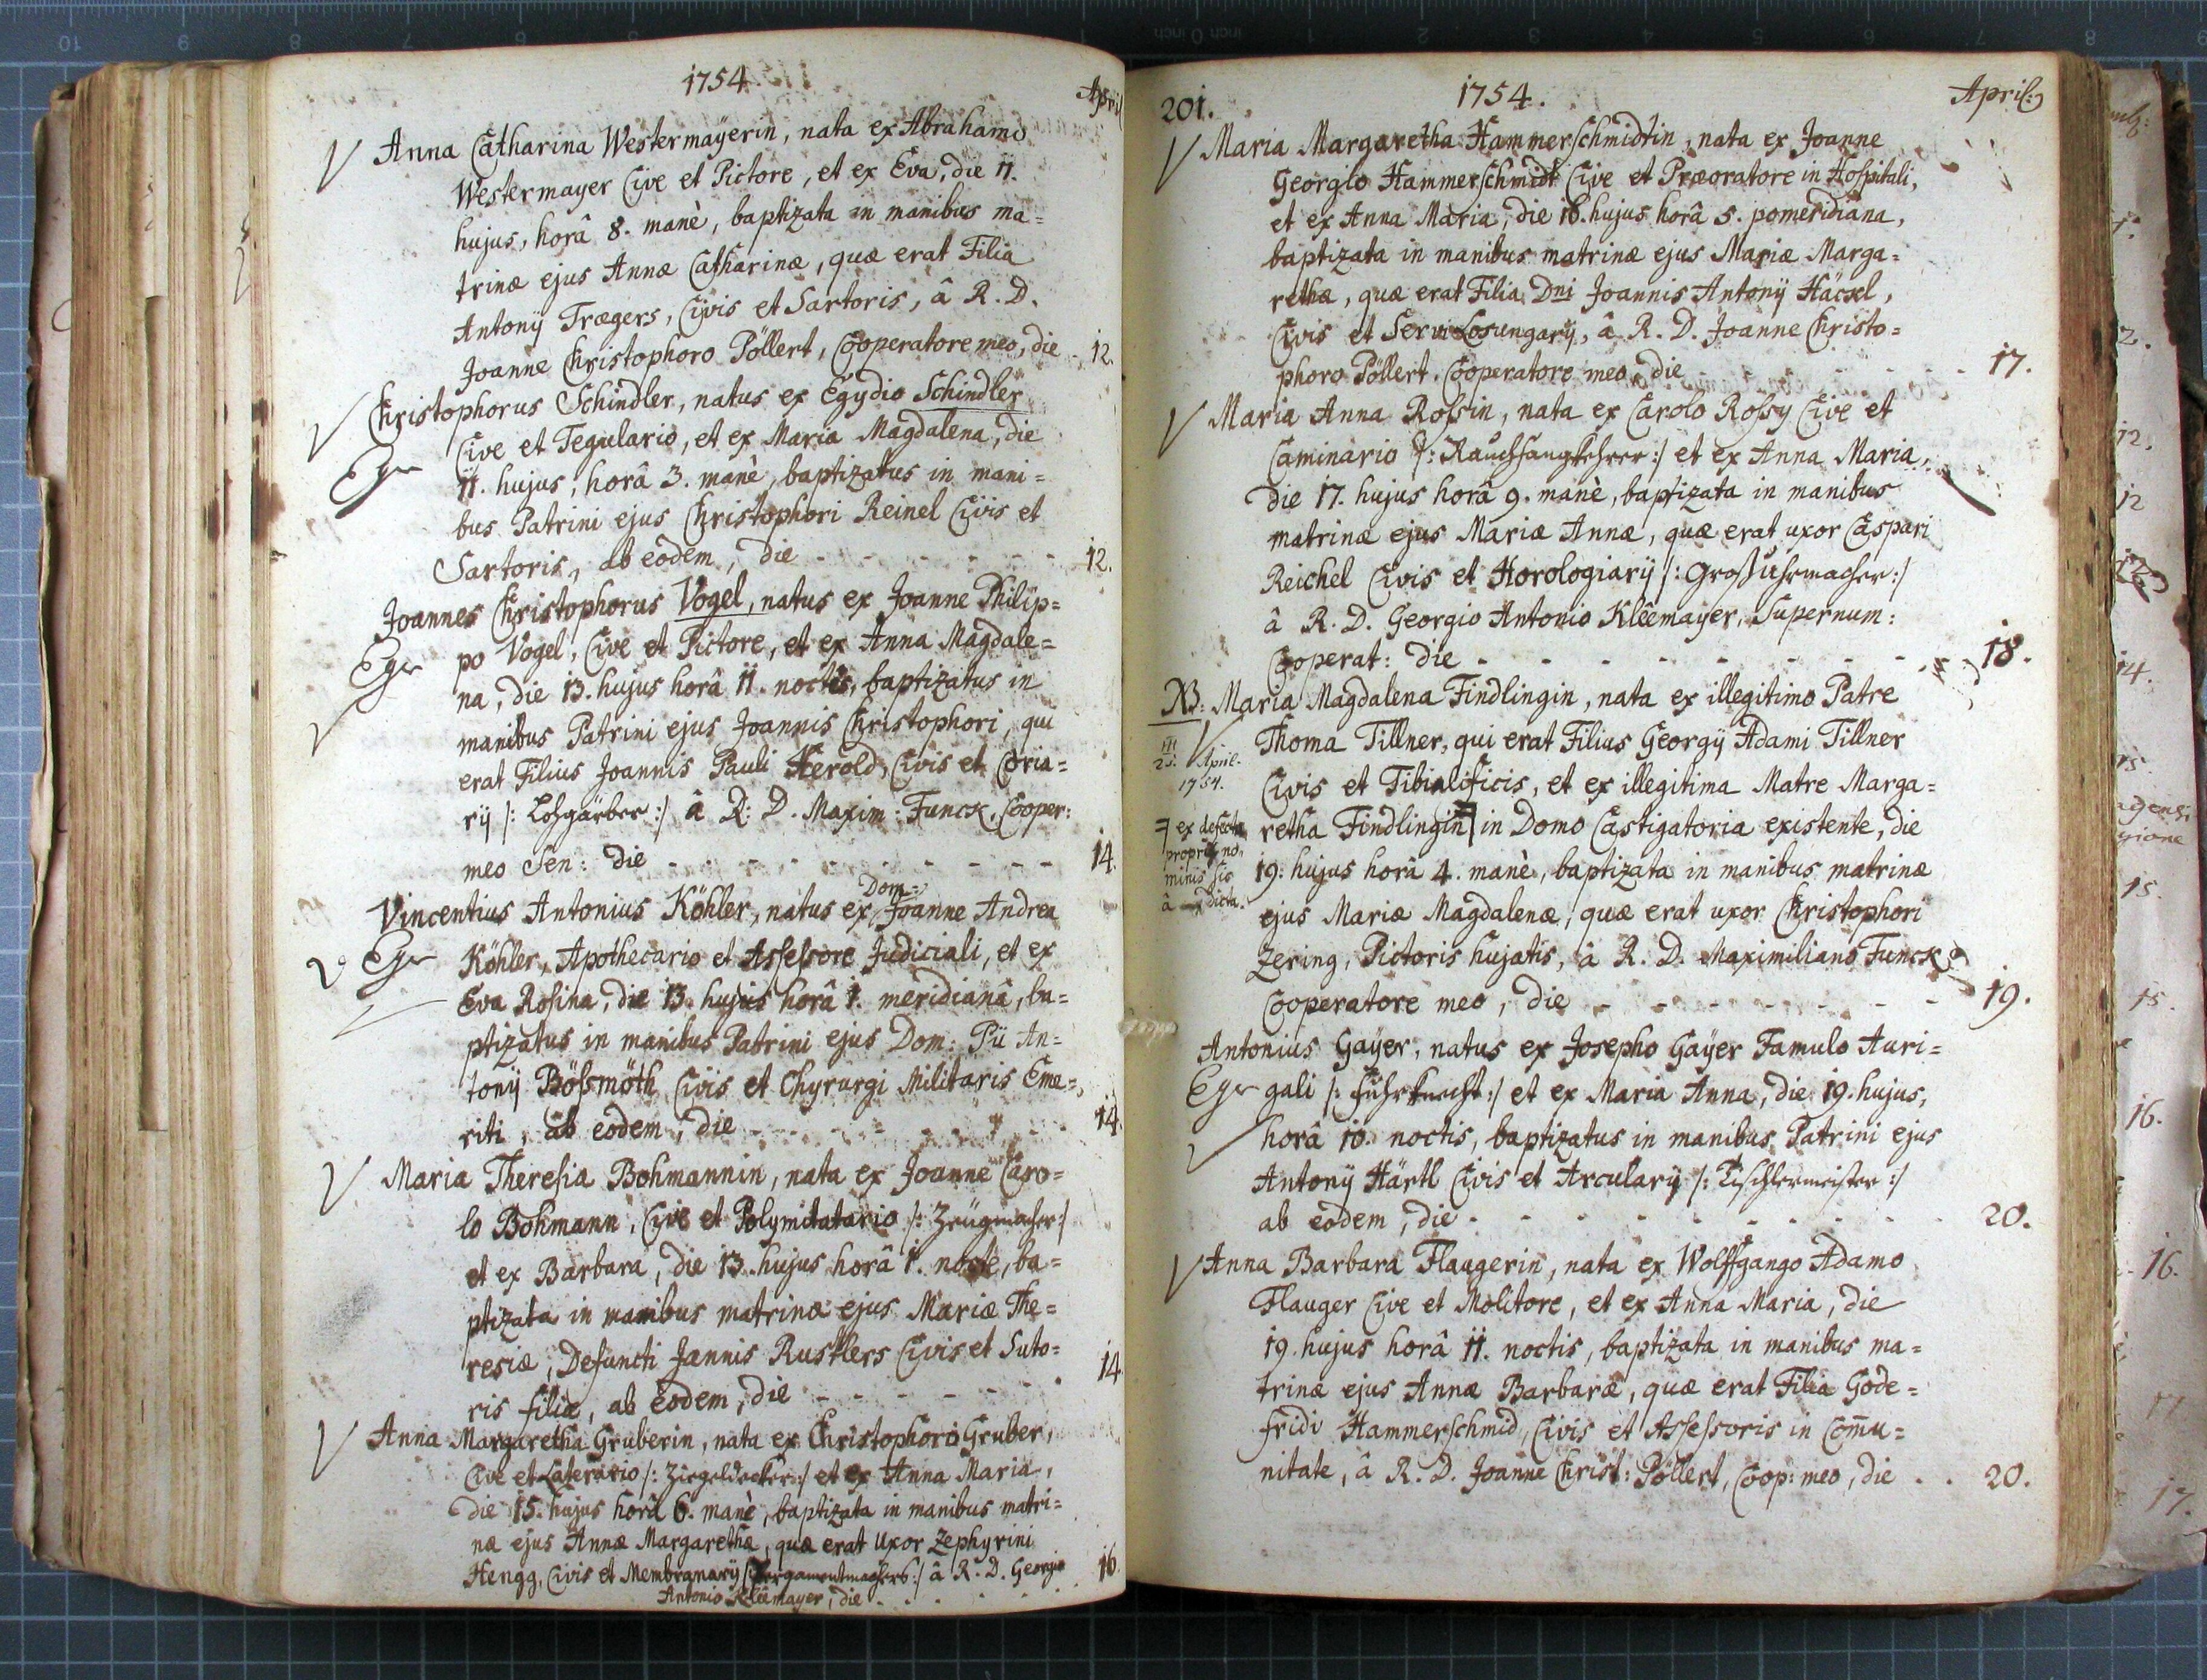 1754.
April
Anna Catharina Westermaÿerin, nata ex Abrahamo
Westermayer Cive et Pictore, et ex Eva, die 11.
hujus, horâ 8. manè, baptizata in manibus ma=
trinæ ejus Annæ Catharinæ, quæ erat Filia
Antonÿ Trægers, Civis et Sartoris, â R. D.
Joanne Christophoro Pöllert, Cooperatore meo, die 12.
Christophorus Schindler, natus ex Egydio Schindler
Cive et Tegulario, et ex Maria Magdalena, die
11. hujus, horâ 3. manè, baptizatus in mani=
bus Patrini ejus Christophori Reinel Civis et
Sartoris, ab eodem, die - - - - - - - 12.
Joannes Christophorus Vogel, natus ex Joanne Philip=
po Vogel, Cive et Pictore, et ex Anna Magdale=
na, die 13. hujus horâ 11. noctis, baptizatus in
manibus Patrini ejus Joannis Christophori, qui
erat Filius Joannis Pauli Herold, Civis et Coria=
rÿ /: Lohgärber :/ â R: D. Maxim: Funck, Cooper:
meo Sen: die - - - - - - - - - - 14.
Dom=
Vincentius Antonius Köhler, natus ex Joanne Andrea
Köhler, Apothecario et Assessore Judiciali, et ex
Eva Rosina, die 13. hujus horâ 1. meridianâ, ba=
ptizatus in manibus Patrini ejus Dom: Pii An=
tonÿ Bößmöth Civis et Chyrurgi Militaris Eme=
riti, ab eodem, die - - - - - - - - 14.
Maria Theresia Bohmannin, nata ex Joanne Caro=
lo Bohmann, Cive et Polymitatario /: Zeügmacher :/
et ex Barbara, die 13. hujus horâ 1. nocte, ba=
ptizata in manibus matrinæ ejus Mariæ The=
resiæ, Defuncti Jannis Rustlers Civis et Suto=
ris filiæ, ab eodem, die - - - - - - 14.
Anna Margaretha Gruberin, nata ex Christophoro Gruber,
Cive et Laterario /: Ziegeldecker :/ et ex Anna Maria,
die 15. hujus horâ 6. manè, baptizata in manibus matri=
næ ejus Annæ Margarethæ, quæ erat Uxor Zephyrini
Hengg, Civis et Membranarÿ /: Pergamentmachers :/ â R. D. Georgio 16.
Antonio Kleêmayer, die
201.
1754.
April:
Maria Margaretha Hammerschmidtin, nata ex Joanne
Georgio Hammerschmidt Cive et Præoratore in Hospitali,
et ex Anna Maria, die 16. hujus horâ 5. pomeridiana,
baptizata in manibus matrinæ ejus Mariæ Marga=
rethæ, quæ erat Filia Dni Joannis Antonÿ Häckel,
Civis et Servi Losungarÿ, â R. D. Joanne Christo=
phoro Pöllert, Cooperatore meo, die - - - - 17.
Maria Anna Rossin, nata ex Carolo Rossy Cive et
Caminario /: Rauchfangkehrer :/ et ex Anna Maria,
die 17. hujus horâ 9. manè, baptizata in manibus
matrinæ ejus Mariæ Annæ, quæ erat uxor Caspari
Reichel Civis et Horologiarÿ /: Groß Uhrmacher :/
â R. D. Georgio Antonio Kleêmayer, Supernum:
Cooperat: die - - - - - - - - 18.
NB: Maria Magdalena Findlingin, nata ex illegitimo Patre
Thoma Tillner, qui erat Filius Georgÿ Adami Tillner
April.
1754.
Civis et Tibialificis, et ex illegitima Matre Marga=
retha Findlingin in Domo Castigatoria existente, die
ex defectu
proprii no=
minis sic
â dicta.
19. hujus horâ 4. manè, baptizata in manibus matrinæ
ejus Mariæ Magdalenæ, quæ erat uxor Christophori
Zering, Pictoris hujatis, â R. D. Maximiliano Funck
Cooperatore meo, die - - - - - - - - 19.
Antonius Gaÿer, natus ex Josepho Gaÿer Famulo Auri=
gali /: Fuhrknecht :/ et ex Maria Anna, die 19. hujus,
horâ 10. noctis, baptizatus in manibus Patrini ejus
Antonÿ Härtl Civis et Arcularÿ /: Tischlermeister :/
ab eodem, die - - - - - - - - - 20.
Anna Barbara Flaugerin, nata ex Wolffgango Adamo
Flauger Cive et Molitore, et ex Anna Maria, die
19. hujus horâ 11. noctis, baptizata in manibus ma=
trinæ ejus Annæ Barbaræ, quæ erat Filia Gode=
fridi Hammerschmid, Civis et Assessoris in Com̄u=
nitate, â R. D. Joanne Christ: Pöllert, Coop: meo, die . . 20.